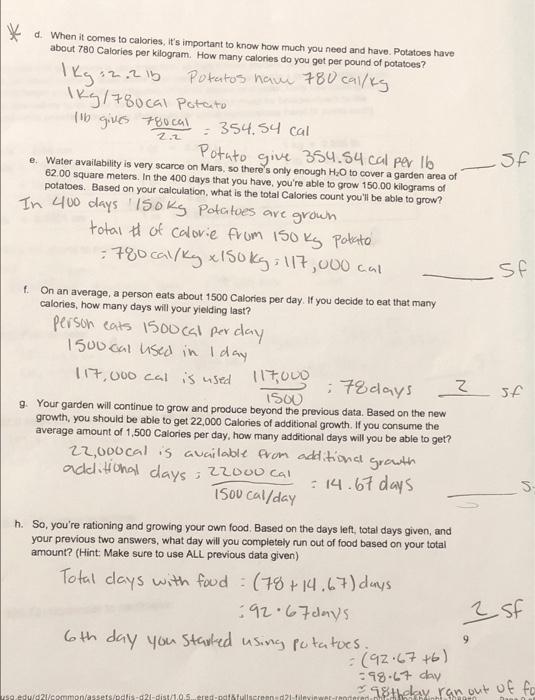 d. When it comes to calories, it's important to know how much you need and have. Potatoes have
about 780 Calories per kilogram. How many calories do you get per pound of potatoes?
1 Kg = 2.2 lb Potatos have 780 cal/kg
1Kg/780cal Potato
1lb gives 780cal/2.2 = 354.54 cal
Potato give 354.54 cal per lb
___ sf
e. Water availability is very scarce on Mars, so there's only enough H₂O to cover a garden area of
62.00 square meters. In the 400 days that you have, you're able to grow 150.00 kilograms of
potatoes. Based on your calculation, what is the total Calories count you'll be able to grow?
In 400 days 150kg Potatoes are grown
total # of calorie from 150 kg potato
= 780 cal/kg x 150kg = 117,000 cal
___ sf
f. On an average, a person eats about 1500 Calories per day. If you decide to eat that many
calories, how many days will your yielding last?
Person eats 1500cal per day
1500 cal used in 1 day
117,000 cal is used 117,000/1500 = 78 days
2 sf
g. Your garden will continue to grow and produce beyond the previous data. Based on the new
growth, you should be able to get 22,000 Calories of additional growth. If you consume the
average amount of 1,500 Calories per day, how many additional days will you be able to get?
22,000cal is available from additional growth
additional days = 22000 cal/1500 cal/day = 14.67 days
___ s
h. So, you're rationing and growing your own food. Based on the days left, total days given, and
your previous two answers, what day will you completely run out of food based on your total
amount? (Hint: Make sure to use ALL previous data given)
Total days with food = (78 + 14.67) days
= 92.67 days
2 sf
6th day you started using potatoes.
9
= (92.67 + 6)
= 98.67 day
= 98th day ran out of fo
usg.edu/d2l/common/assets/pdfjs-d2l-dist/1.0.5